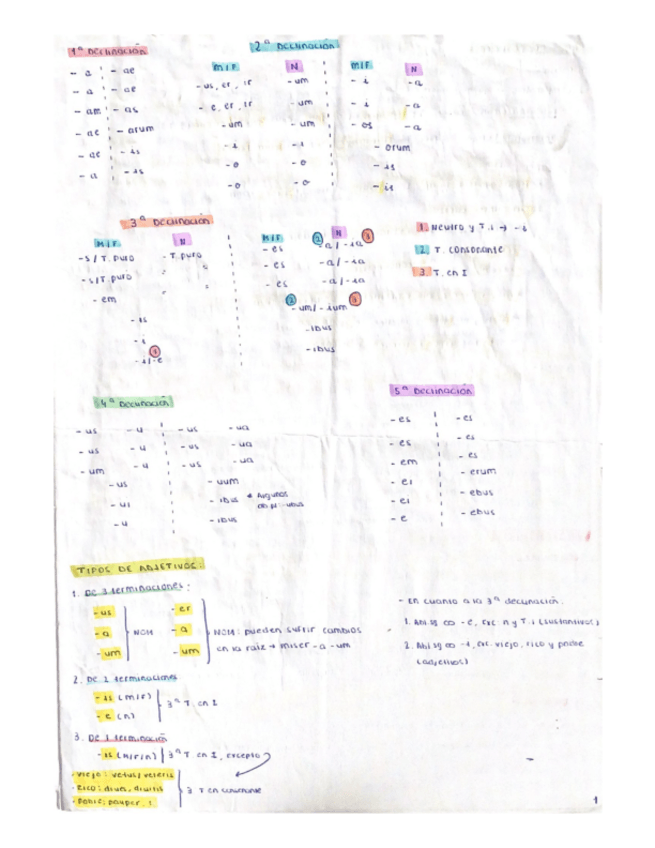 1ª DECLINACIÓN
- a - ae
- a - ae
- am - as
- ae - arum
- ae - is
- a - is
2ª DECLINACIÓN
M/F N M/F N
- us, er, ir - um - i - a
- e, er, ir - um - i - a
- um - um - os - a
- i - i - orum
- o - o - is
- o - o - is
3ª DECLINACIÓN
M/F N M/F 2 N 3
- s / T. puro - T. puro - es - a / - ia
- s / T. puro " " - es - a / - ia
- em " " - es - a / - ia
- is 2 - um / - ium 3
- i - ibus
- i / - e 3 - ibus
1. Neutro y T. i → - i
2. T. consonante
3. T. en I
4ª DECLINACIÓN
- us - u - us - ua
- us - u - us - ua
- um - u - us - ua
- us - uum
- ui - ibus * Algunos
- u - ibus
5ª DECLINACIÓN
- es - es
- es - es
- em - es
- ei - erum
- ei - ebus
- e - ebus
TIPOS DE ADJETIVOS:
1. DE 3 terminaciones:
- us - er
- a NOM - a NOM: pueden sufrir cambios
- um - um en la raíz → miser - a - um
2. DE 2 terminaciones
- is (M/F) 3ª T. en I
- e (n)
3. DE 1 terminación
- is (M/F/N) 3ª T en I, excepto
- Viejo: vetus, veteris
- Rico: dives, divitis 3 T en consonante
- Pobre: pauper, i
- En cuanto a la 3ª declinación.
1. Abl sg ∞ - e, exc. n y T. i (sustantivos)
2. Abl sg ∞ - i, exc. viejo, rico y pobre
(adjetivos)
1